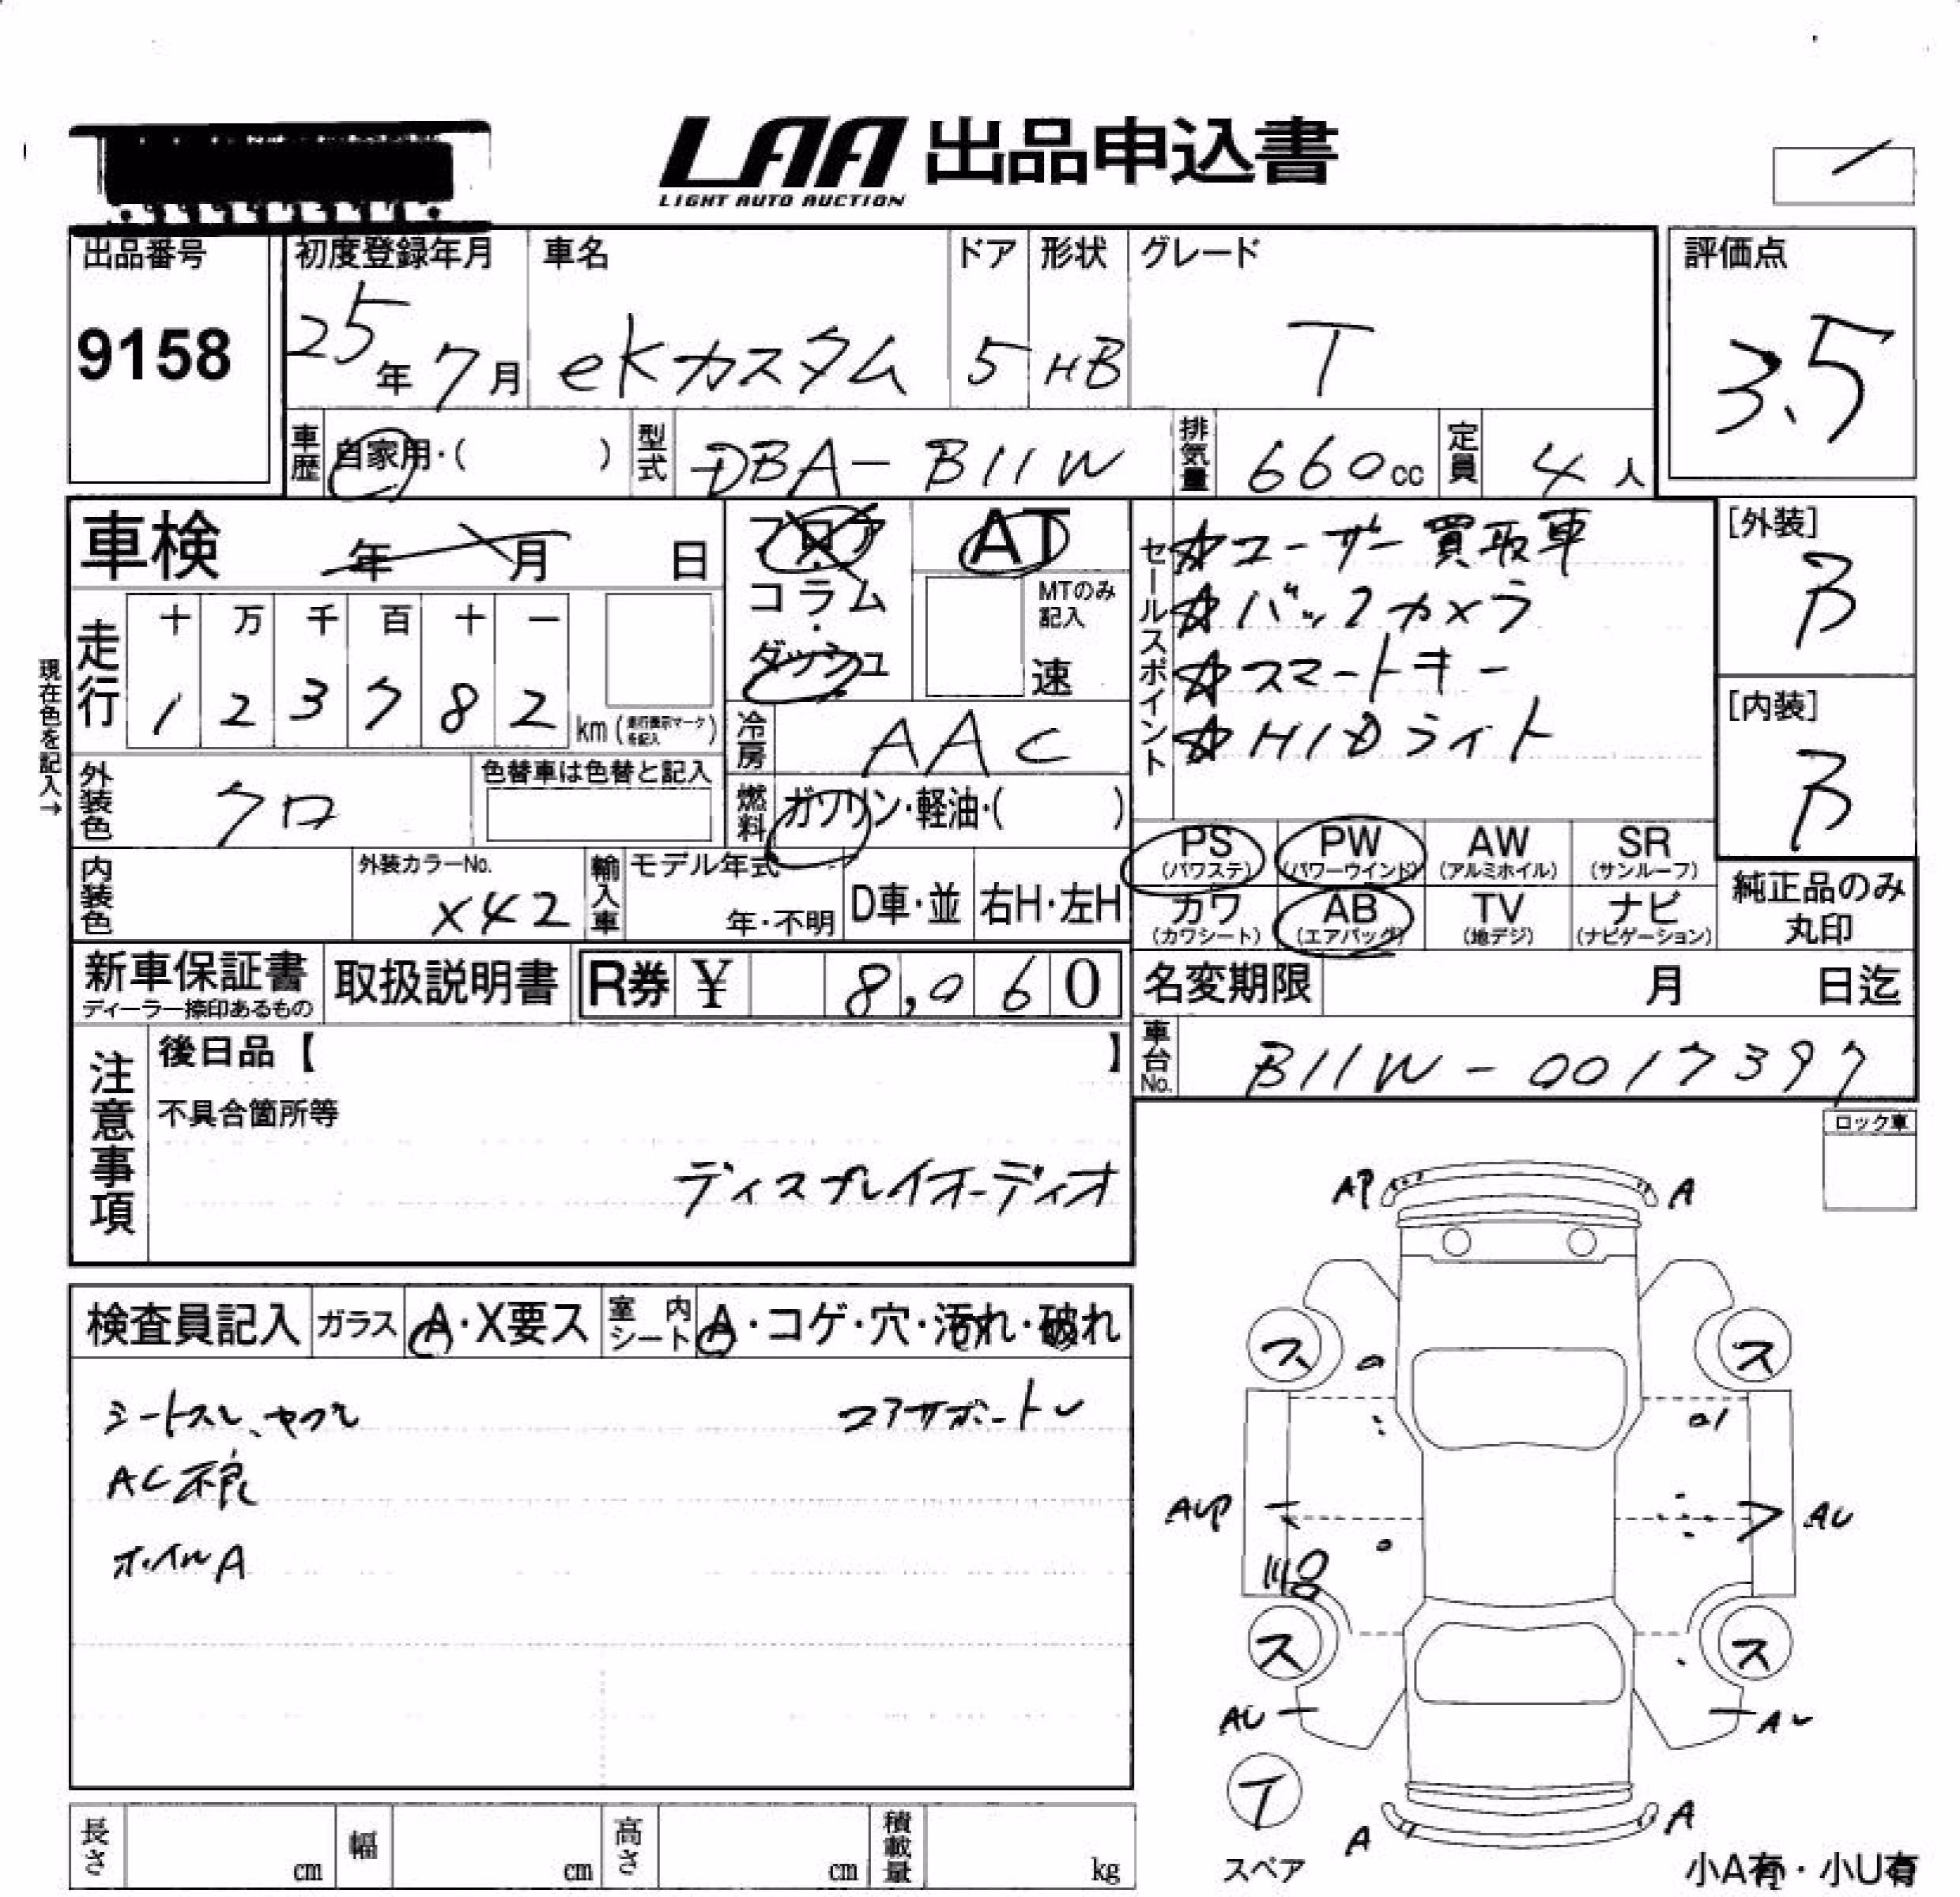 LAA 出品申込書
LIGHT AUTO AUCTION
出品番号
9158
初度登録年月
25年7月
車名
eKカスタム
ドア
5
形状
HB
グレード
T
評価点
3.5
車歴 自家用・( )
型式 DBA-B11W
排気量 660cc
定員 4人
車検 年 月 日
フロア・コラム・ダッシュ
AT
MTのみ記入
速
走行 十万千百十一
123782 km(走行表示マークを記入)
現在色を記入→
外装色 クロ
色替車は色替と記入
冷房 AAC
燃料 ガソリン・軽油・( )
内装色
外装カラーNo.
X42
輸入車 モデル年式
年・不明
D車・並
右H・左H
セールスポイント
☆ユーザー買取車
☆バックカメラ
☆スマートキー
☆HIDライト
[外装]
B
[内装]
B
PS (パワステ)
PW (パワーウインド)
AW (アルミホイル)
SR (サンルーフ)
カワ (カワシート)
AB (エアバッグ)
TV (地デジ)
ナビ (ナビゲーション)
純正品のみ丸印
新車保証書
ディーラー捺印あるもの
取扱説明書
R券 ¥ 8,060
名変期限 月 日迄
車台No. B11W-0017397
注意事項
後日品【 】
不具合箇所等
ディスプレイオーディオ
ロック車
検査員記入
ガラス A・X要ス
室内シート A・コゲ・穴・汚れ・破れ
シートスレ、ヤブレ
コアサポートU
AC不良
ホイルA
AP
A
ス
ス
AUP
AU
ス
ス
AU
AU
T
スペア
A
A
小A有・小U有
長さ cm
幅 cm
高さ cm
積載量 kg